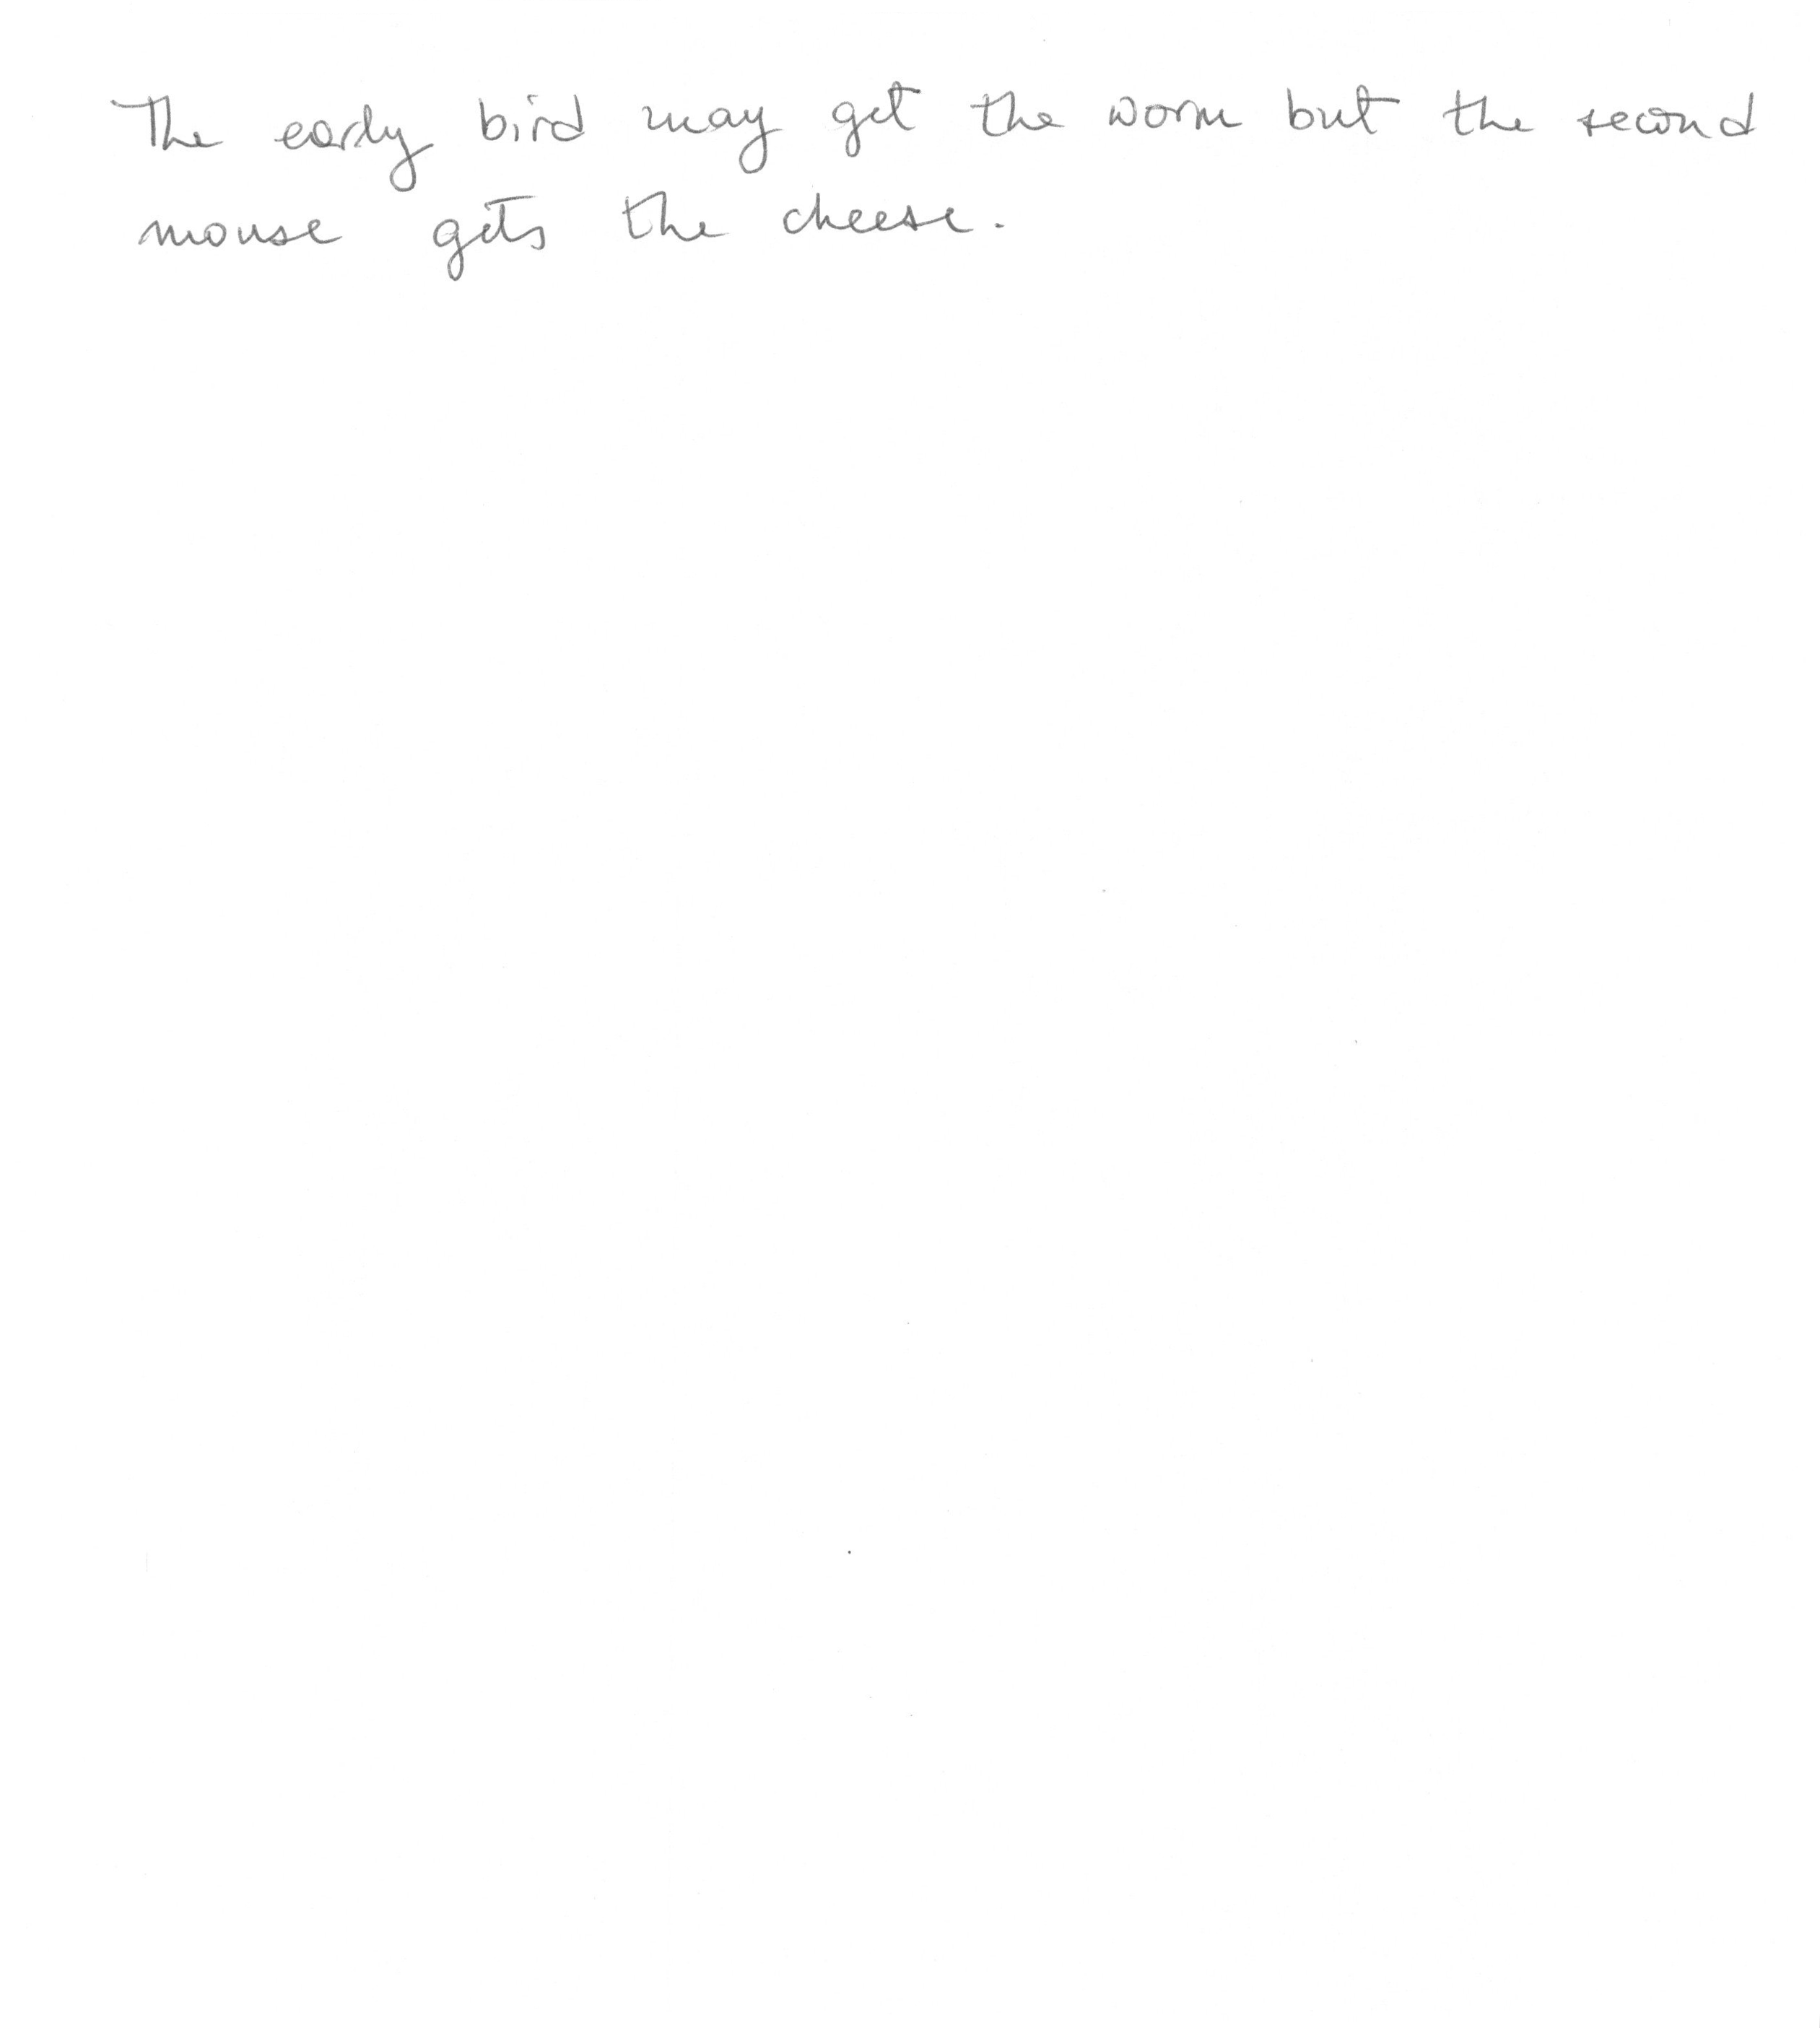 The early bird may get the worm but the second
mouse gets the cheese.